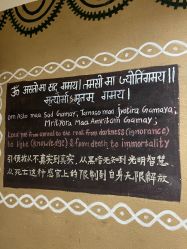 ॐ असतो मा सद् गमय। तमसो मा ज्योतिर्गमय।।
मृत्योर्मा अमृतम् गमय।
Om Asto maa Sad Gamay, Tamaso maa Jyotira Gamaya;
Mrityora Maa Amritam Gamay;
Lead me from unreal to the real from darkness (ignorance)
to light (knowledge) & from death to immortality
引领我从不真实到真实, 从黑暗无知到光明智慧
从死亡这种感官上的限制到自身无限解放